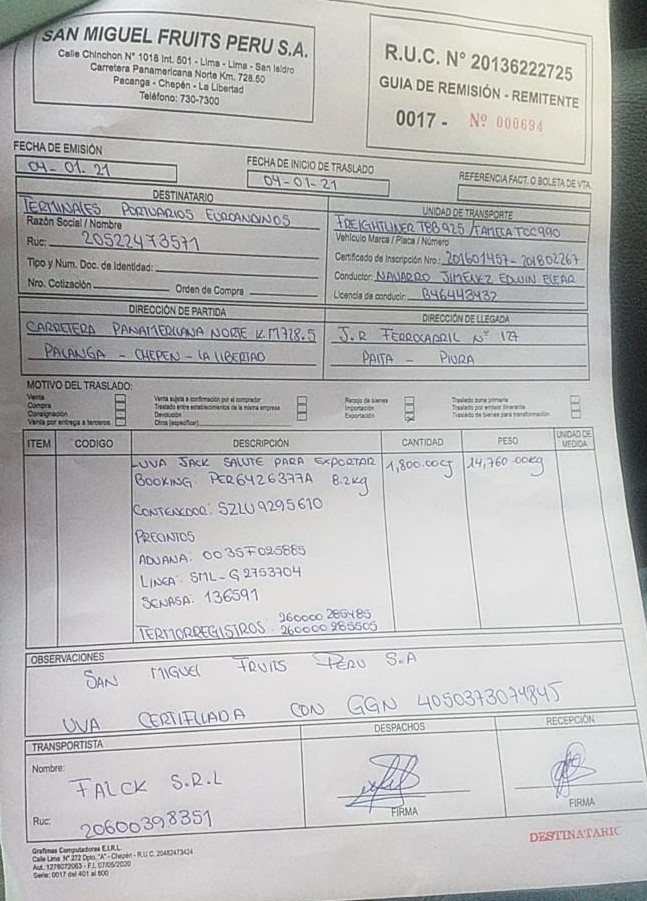 SAN MIGUEL FRUITS PERU S.A.
Calle Chinchon N° 1018 Int. 501 - Lima - Lima - San Isidro
Carretera Panamericana Norte Km. 728.50
Pacanga - Chepén - La Libertad
Teléfono: 730-7300
R.U.C. N° 20136222725
GUIA DE REMISIÓN - REMITENTE
0017 - Nº 000694
FECHA DE EMISIÓN
04-01-21
FECHA DE INICIO DE TRASLADO
04-01-21
REFERENCIA FACT. O BOLETA DE VTA.
DESTINATARIO
TERMINALES PORTUARIOS EUROANDINOS
Razón Social / Nombre
Ruc: 20522473571
Tipo y Num. Doc. de Identidad:
Nro. Cotización Orden de Compra
UNIDAD DE TRANSPORTE
FREIGHTLINER T8B925 / TCC990
Vehículo Marca / Placa / Número
Certificado de Inscripción Nro.: 201601457-201802267
Conductor: NAVARRO JIMENEZ EDWIN
Licencia de conducir: B46443432
DIRECCIÓN DE PARTIDA
CARRETERA PANAMERICANA NORTE KM728.5
PACANGA - CHEPEN - LA LIBERTAD
DIRECCIÓN DE LLEGADA
J.R FERROCARRIL N° 127
PAITA - PIURA
MOTIVO DEL TRASLADO:
Venta
Compra
Consignación
Venta por entrega a terceros
Venta sujeta a confirmación por el comprador
Traslado entre establecimientos de la misma empresa
Devolución
Otros (especificar)
Recojo de bienes
Importación
Exportación
Traslado zona primaria
Traslado por emisor itinerante
Traslado de bienes para transformación
ITEM CODIGO DESCRIPCIÓN CANTIDAD PESO UNIDAD DE MEDIDA
UVA JACK SALUTE PARA EXPORTAR 1,800.00CJ 14,760.00kg
BOOKING: PER6426377A 8.2kg
CONTENEDOR: SZLU9295610
PRECINTOS
ADUANA: 0035F025885
LINEA: SML-G2753704
SENASA: 136591
260000 285485
TERMORREGISTROS: 260000 285505
OBSERVACIONES
SAN MIGUEL FRUITS PERU S.A
UVA CERTIFICADA CON GGN 4050373074845
TRANSPORTISTA
Nombre:
FALCK S.R.L
Ruc: 20600398351
DESPACHOS
FIRMA
RECEPCIÓN
FIRMA
Grafimas Computadoras E.I.R.L.
Calle Lima N° 272 Dpto. "A" - Chepén - R.U.C. 20482473424
Aut. 1278072063 - F.I. 07/05/2020
Serie: 0017 del 401 al 800
DESTINATARIO